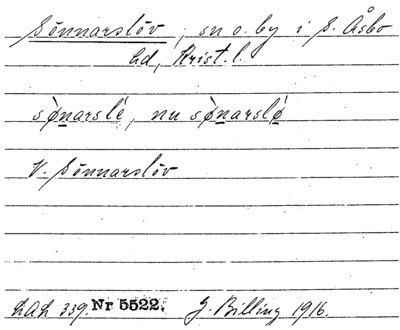 Sönnarslöv, sn o. by i S. Åsbo
hd, Krist. l.
sø̀narslé, nu sø̀narslǿ
V. Sönnarslöv
LAL 339. Nr 5522. G. Billing 1916.